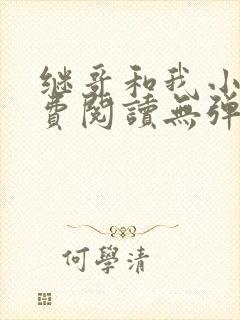 继哥和我小
費閱讀無弹
何學清